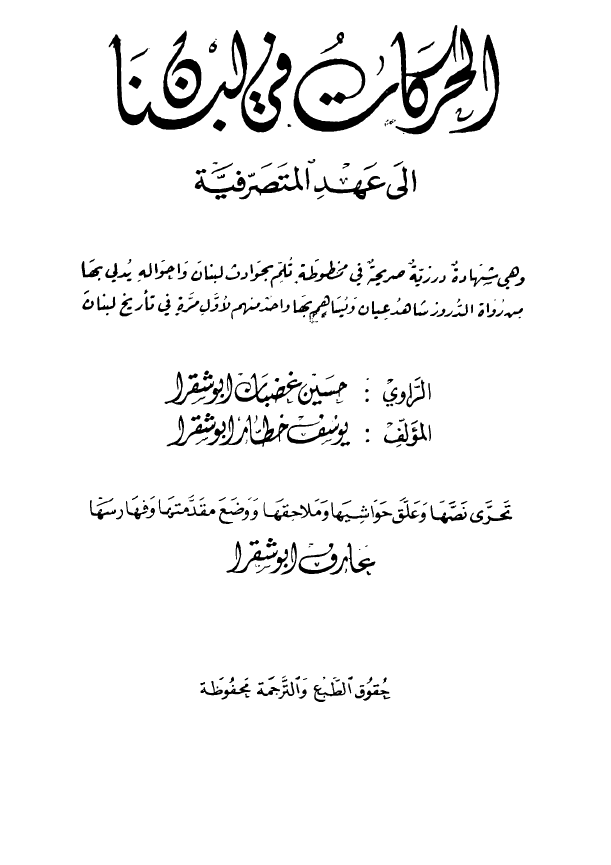 الحركات في لبنان
الى عَهدِ المتَصَرّفيَّة
وهي شهَادةٌ درزيّةٌ صريحةٌ في مخطوطةٍ تُلمّ بحوادث لبنان واحوالهِ يُدلي بها
من رُواة الدُّروز شاهدُ عيان ويُساهِم بها واحد منهم لأوّل مرَّةٍ في تأريخ لبنان
الرَّاوي : حسين غضبان ابوشقرا
المؤلّف : يوسف خطار ابوشقرا
تَحَرَّى نَصَّهَا وَعَلَّقَ حَوَاشيَها وَمَلاحِقهَا وَوَضَعَ مقَدَّمتهَا وَفهَارسَهَا
عارف ابوشقرا
حُقوق الطَّبْع وَالتَّرجمَة مَحفُوظَة